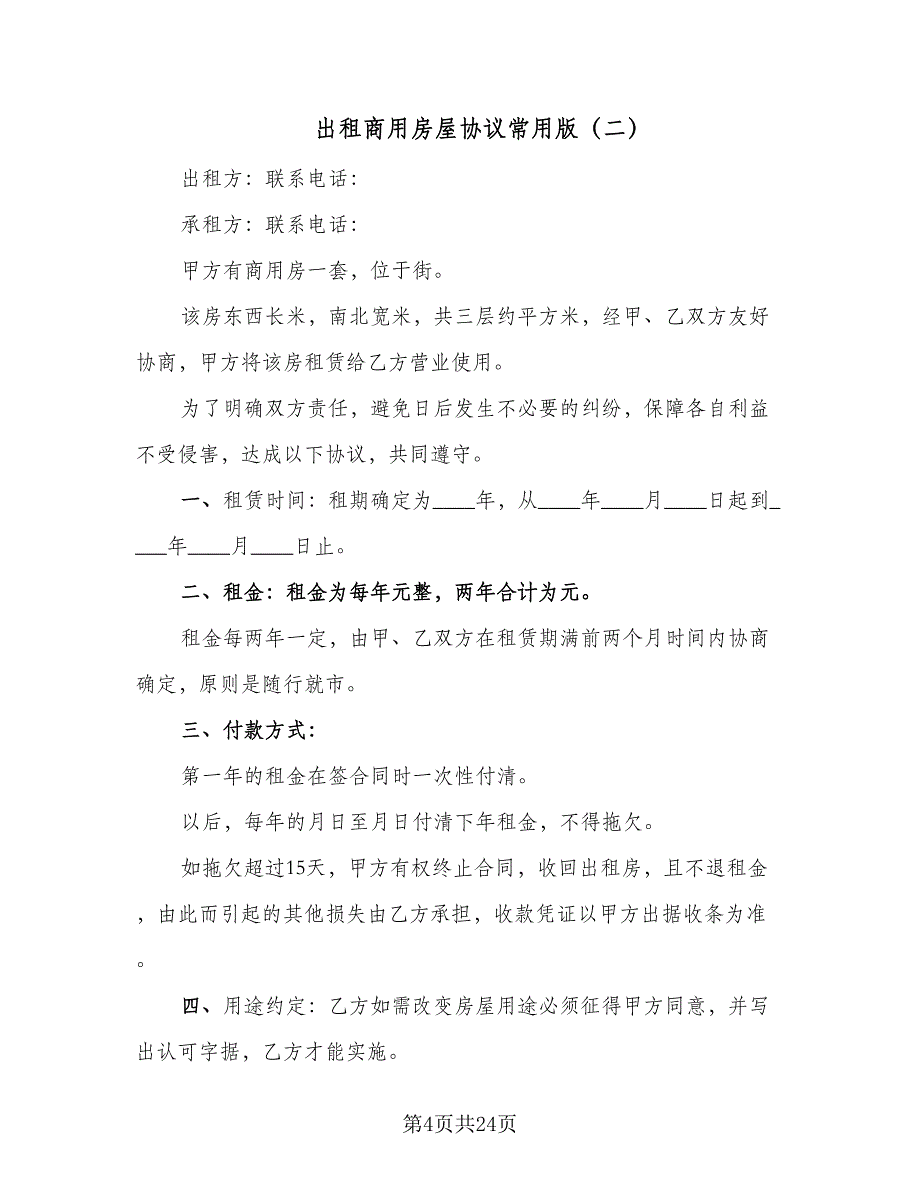 出租商用房屋协议常用版（二）
出租方：联系电话：
承租方：联系电话：
甲方有商用房一套，位于街。
该房东西长米，南北宽米，共三层约平方米，经甲、乙双方友好
协商，甲方将该房租赁给乙方营业使用。
为了明确双方责任，避免日后发生不必要的纠纷，保障各自利益
不受侵害，达成以下协议，共同遵守。
一、租赁时间：租期确定为____年，从____年____月____日起到_
___年____月____日止。
二、租金：租金为每年元整，两年合计为元。
租金每两年一定，由甲、乙双方在租赁期满前两个月时间内协商
确定，原则是随行就市。
三、付款方式：
第一年的租金在签合同时一次性付清。
以后，每年的月日至月日付清下年租金，不得拖欠。
如拖欠超过15天，甲方有权终止合同，收回出租房，且不退租金
，由此而引起的其他损失由乙方承担，收款凭证以甲方出据收条为准
。
四、用途约定：乙方如需改变房屋用途必须征得甲方同意，并写
出认可字据，乙方才能实施。
第4页共24页